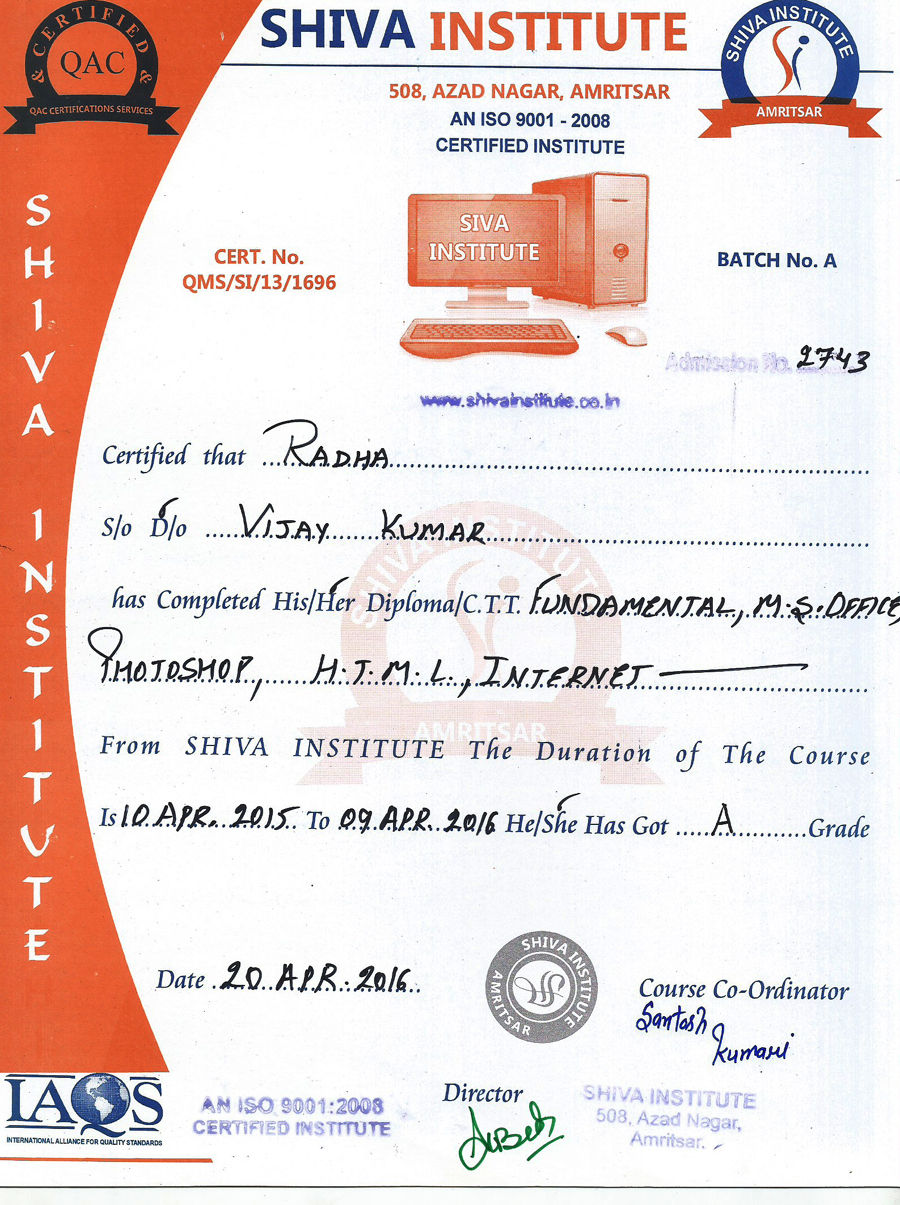 SHIVA INSTITUTE
CERTIFIED
& QAC &
QAC CERTIFICATIONS SERVICES
SHIVA INSTITUTE
AMRITSAR
508, AZAD NAGAR, AMRITSAR
AN ISO 9001 - 2008
CERTIFIED INSTITUTE
SHIVA INSTITUTE
SIVA
INSTITUTE
CERT. No.
QMS/SI/13/1696
BATCH No. A
Admission No. 2743
www.shivainstitute.co.in
Certified that RADHA
S/o D/o VIJAY KUMAR
SHIVA INSTITUTE
AMRITSAR
has Completed His/Her Diploma/C.T.T. FUNDAMENTAL, M.S.OFFICE,
PHOTOSHOP, H.T.M.L., INTERNET
From SHIVA INSTITUTE The Duration of The Course
Is 10 APR. 2015 To 09 APR. 2016 He/She Has Got A Grade
Date 20 APR. 2016
SHIVA INSTITUTE
AMRITSAR
Course Co-Ordinator
Santosh
Kumari
IAQS
INTERNATIONAL ALLIANCE FOR QUALITY STANDARDS
AN ISO 9001:2008
CERTIFIED INSTITUTE
Director
SHIVA INSTITUTE
508, Azad Nagar,
Amritsar.